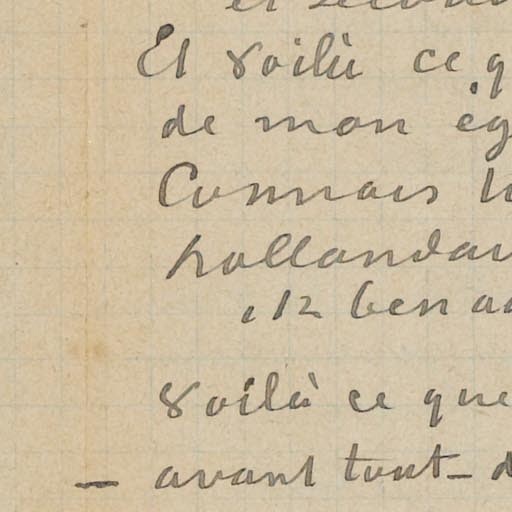 et secon
Et voilà ce q
de mon ég
Connais
hollandai
ik ben
voilà ce que
— avant tout — d